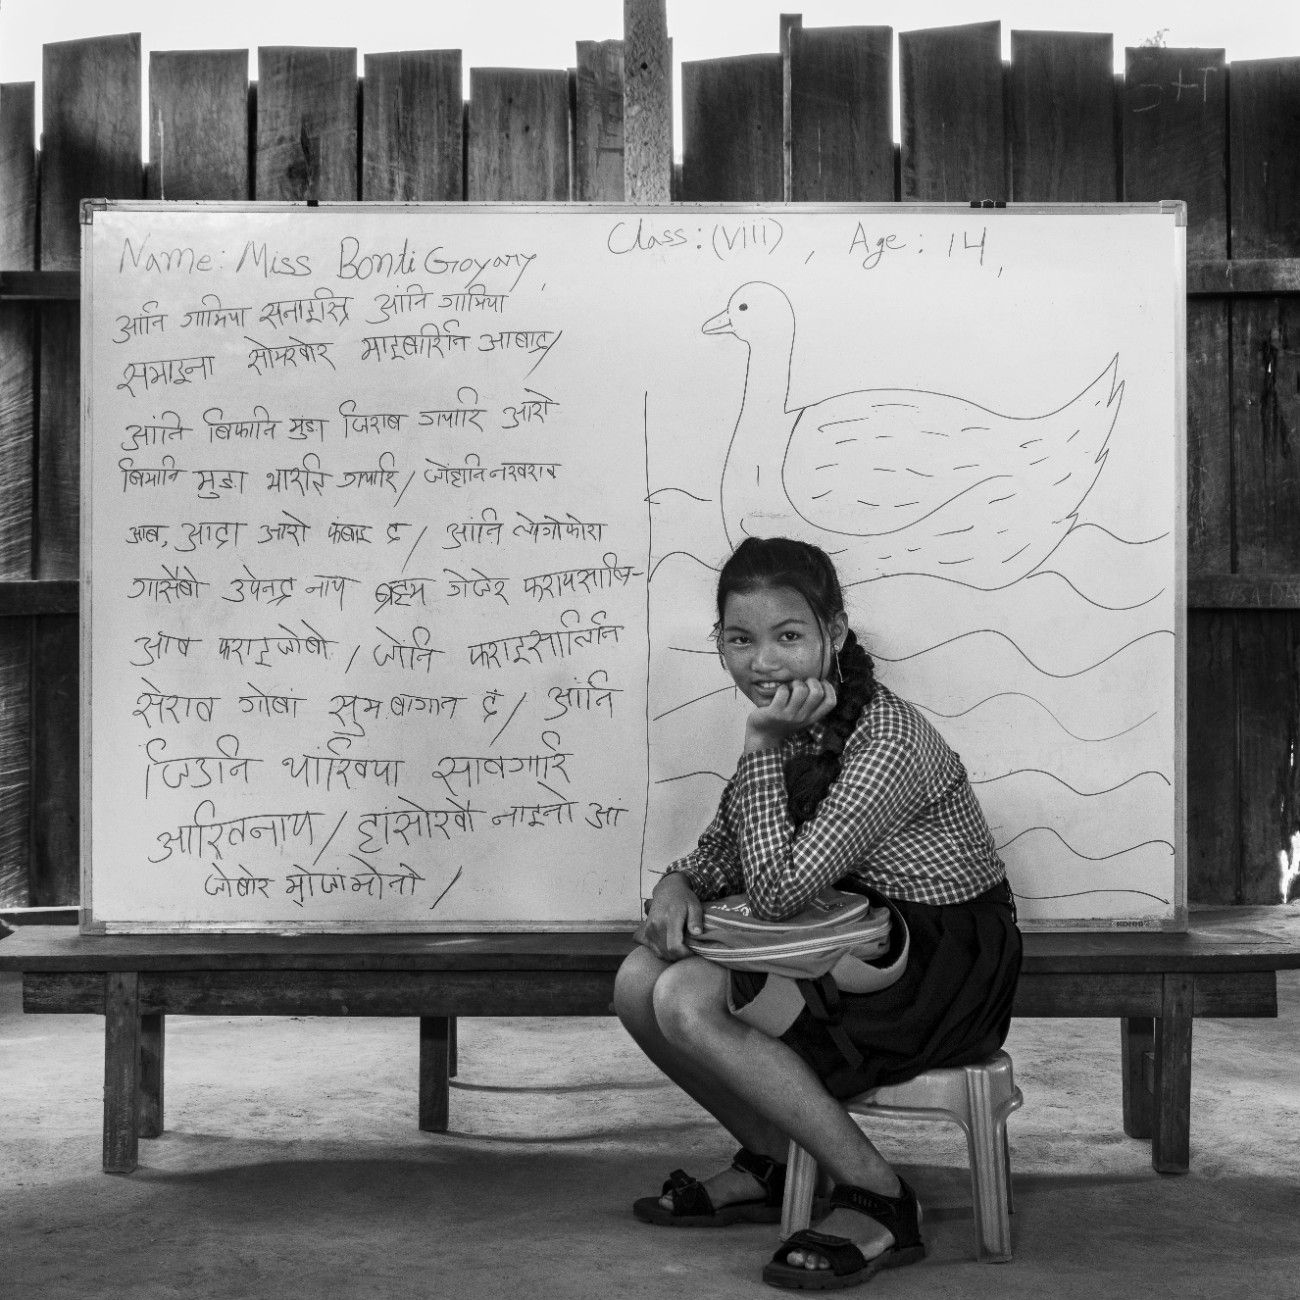 Name: Miss Bonti Goyary,
Class: (VIII), Age: 14,
आंनि गामिया सनाइस्रि आंनि गामिया
समाइना सोमखोर माइबारिनि आबाद्र/
आंनि बिफानि मुङा जिराब गयारि आरो
बिमानि मुङा भारति गयारि/ जोंहानि नखराव
आब, आद्रा आरो फंबाइ दं/ आंनि
गासैबो उपेनद्र नाथ ब्रह्म गेजेर फरायसालि-
आव फराइजोबो/ जोंनि फराइसालिनि
सेराव गोबां सुम बागान दं/ आंनि
जिउनि थांखिया सावगारि
आरितनाय/ हांसोखौ नाइनो आं
जोबोर मोजांमोनो/